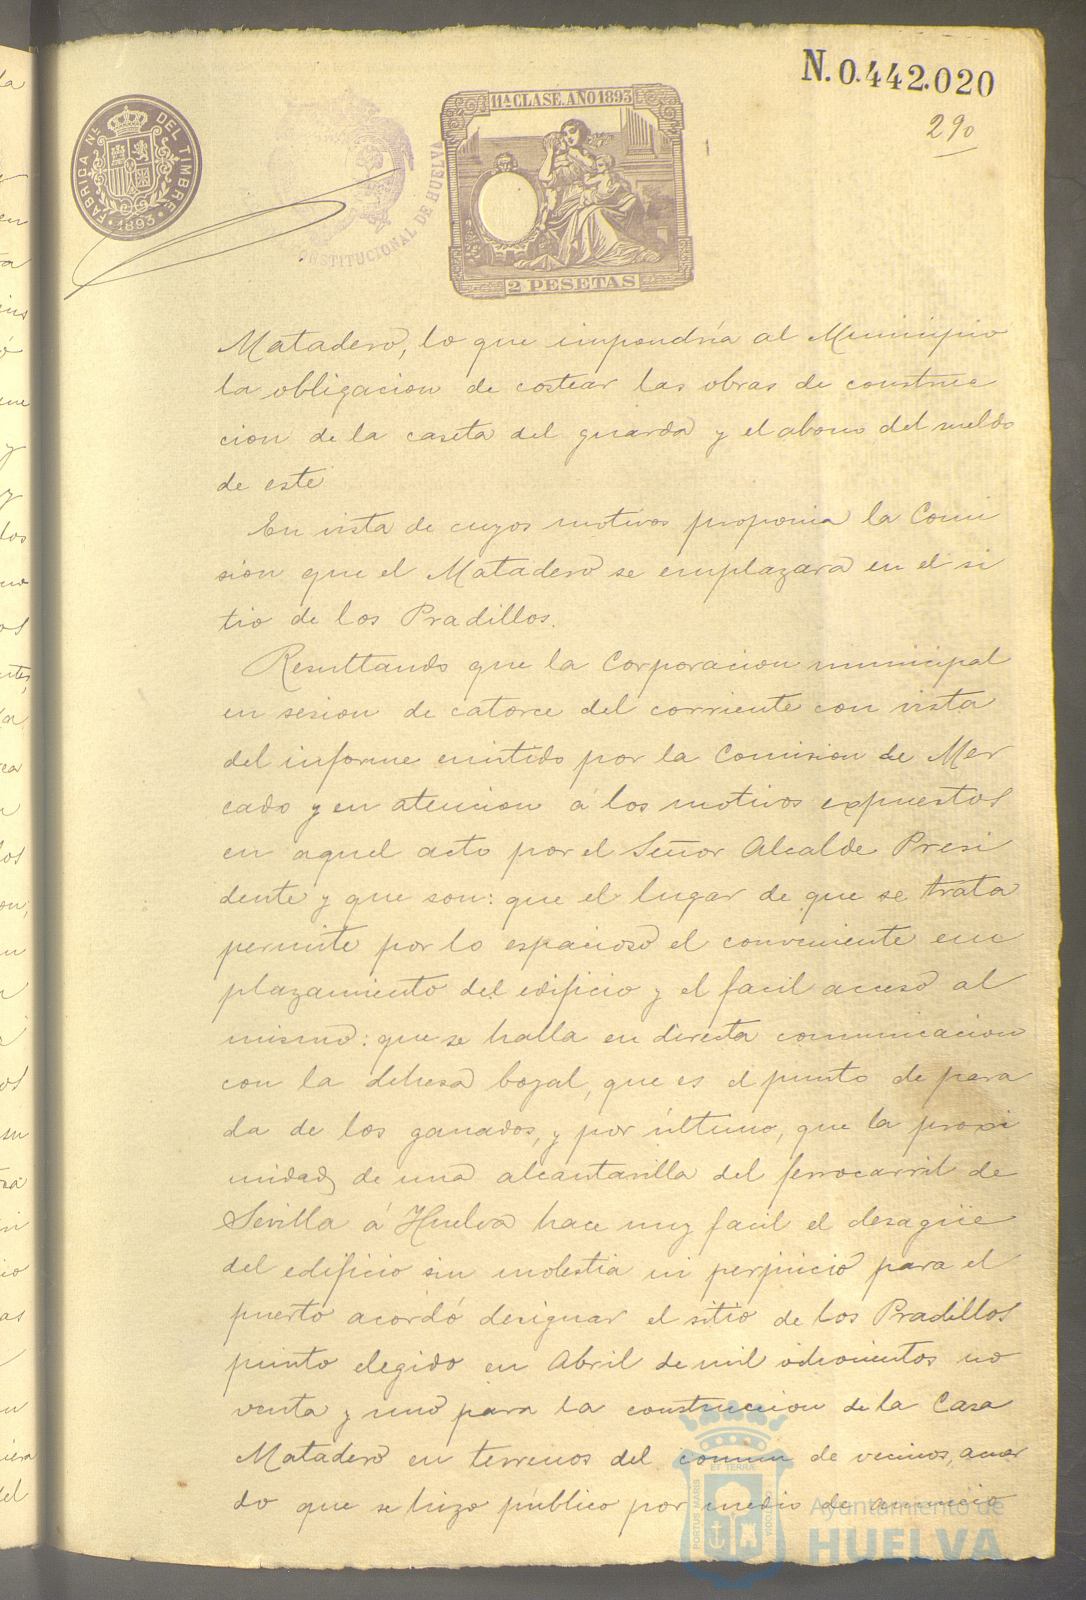 N.0.442.020
290
FABRICA NL. DEL TIMBRE
1893
CONSTITUCIONAL DE HUELVA
11ª CLASE. AÑO 1893
2 PESETAS
Matadero, lo que impondría al Municipio
la obligacion de costear las obras de construc
cion de la caseta del guarda y el abono del sueldo
de este
En vista de cuyos motivos proponia la Comi
sion que el Matadero se emplazara en el si
tio de los Pradillos.
Resultando que la Corporacion municipal
en sesion de catorce del corriente con vista
del informe emitido por la Comision de Mer
cado y en atencion á los motivos expuestos
en aquel acto por el Señor Alcalde Presi
dente y que son: que el lugar de que se trata
permite por lo espacioso el conveniente em
plazamiento del edificio y el facil acceso al
mismo: que se halla en directa comunicacion
con la dehesa boyal, que es el punto de para
da de los ganados, y por último, que la proxi
midad de una alcantarilla del ferrocarril de
Sevilla á Huelva hace muy facil el desagüe
del edificio sin molestia ni perjuicio para el
puerto acordó designar el sitio de los Pradillos
punto elegido en Abril de mil ochocientos no
venta y uno para la construccion de la Casa
Matadero en terrenos del comun de vecinos, acuer
do que se hizo público por medio de anuncio
PORTUS MARIS ET TERRÆ CUSTODIA
Ayuntamiento de
HUELVA